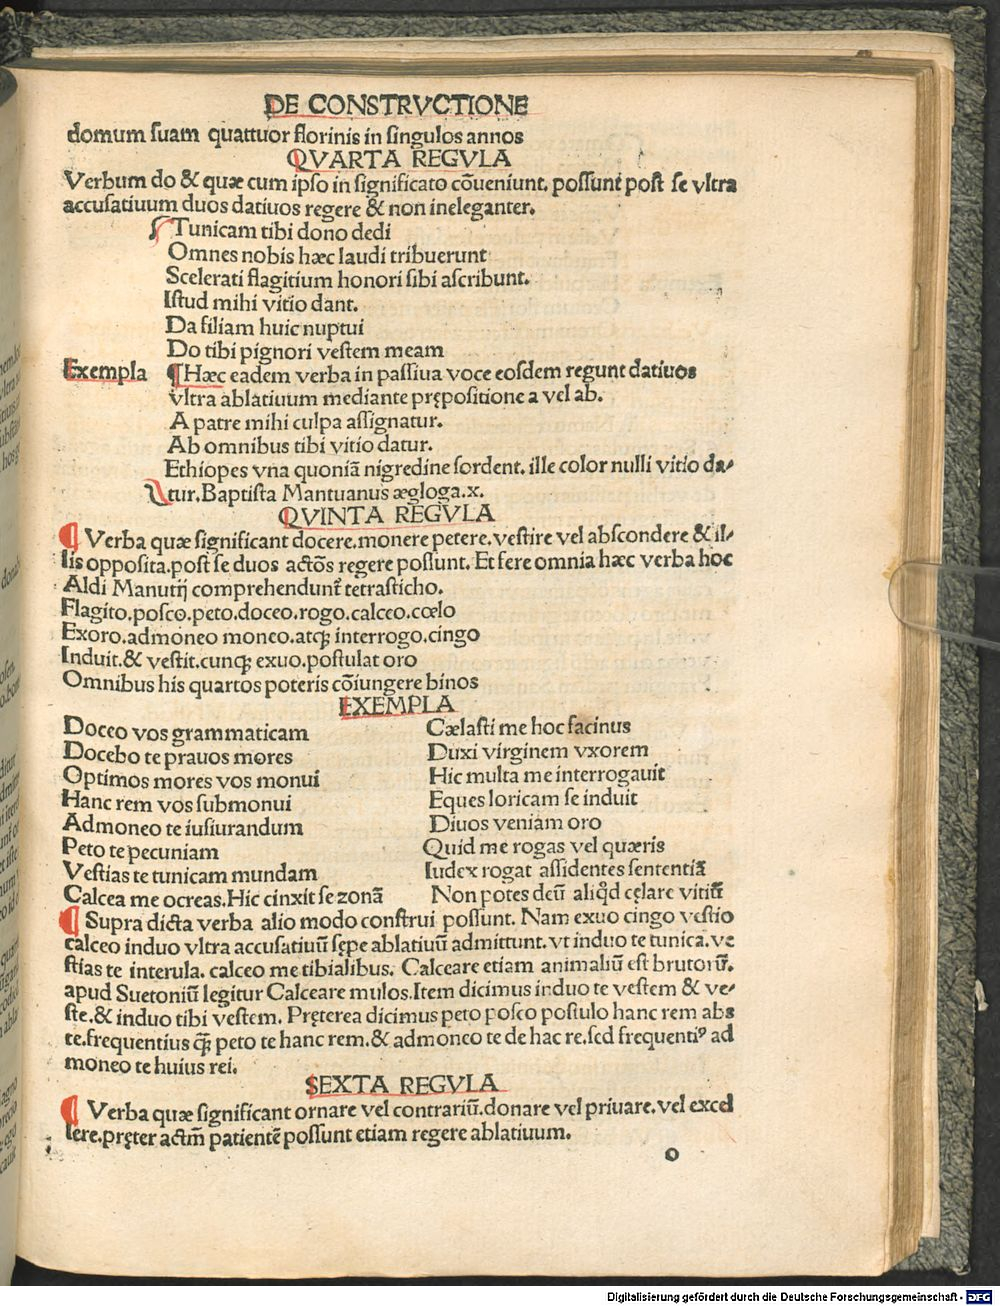 DE CONSTRVCTIONE
domum suam quattuor florinis in singulos annos
QVARTA REGVLA
Verbum do & quæ cum ipso in significato cōueniunt, possunt post se vltra
accusatiuum duos datiuos regere & non ineleganter.
Tunicam tibi dono dedi
Omnes nobis hæc laudi tribuerunt
Scelerati flagitium honori sibi ascribunt.
Istud mihi vitio dant.
Da filiam huic nuptui
Do tibi pignori vestem meam
Exempla ¶ Hæc eadem verba in passiua voce eosdem regunt datiuos
vltra ablatiuum mediante prępositione a vel ab.
A patre mihi culpa assignatur.
Ab omnibus tibi vitio datur.
Ethiopes vna quoniā nigredine sordent. ille color nulli vitio da⸗
tur. Baptista Mantuanus ægloga.x.
QVINTA REGVLA
¶ Verba quæ significant docere.monere petere.vestire vel abscondere & il⸗
lis opposita.post se duos actōs regere possunt. Et fere omnia hæc verba hoc
Aldi Manutij comprehendunt̃ tetrasticho.
Flagito.posco.peto.doceo.rogo.calceo.cœlo
Exoro.admoneo moneo.atqꝫ interrogo.cingo
Induit.& vestit.cunqꝫ exuo.postulat oro
Omnibus his quartos poteris cōiungere binos
EXEMPLA
Doceo vos grammaticam
Docebo te prauos mores
Optimos mores vos monui
Hanc rem vos submonui
Admoneo te iusiurandum
Peto te pecuniam
Vestias te tunicam mundam
Calcea me ocreas.Hic cinxit se zonā
Cælasti me hoc facinus
Duxi virginem vxorem
Hic multa me interrogauit
Eques loricam se induit
Diuos veniam oro
Quid me rogas vel quæris
Iudex rogat assidentes sententiā
Non potes deū aliq̇d cęlare vitiū
¶ Supra dicta verba alio modo construi possunt. Nam exuo cingo vestio
calceo induo vltra accusatiuū sępe ablatiuū admittunt. vt induo te tunica. ve
stias te interula. calceo me tibialibus. Calceare etiam animaliū est brutorū.
apud Suetoniū legitur Calceare mulos.Item dicimus induo te vestem & ve⸗
ste.& induo tibi vestem. Pręterea dicimus peto posco postulo hanc rem abs
te.frequentius qꝫ peto te hanc rem.& admoneo te de hac re.sed frequentiꝰ ad
moneo te huius rei.
SEXTA REGVLA
¶ Verba quæ significant ornare vel contrariū.donare vel priuare.vel excel
lere.pręter actm̄ patientē possunt etiam regere ablatiuum.
o
Digitalisierung gefördert durch die Deutsche Forschungsgemeinschaft - DFG